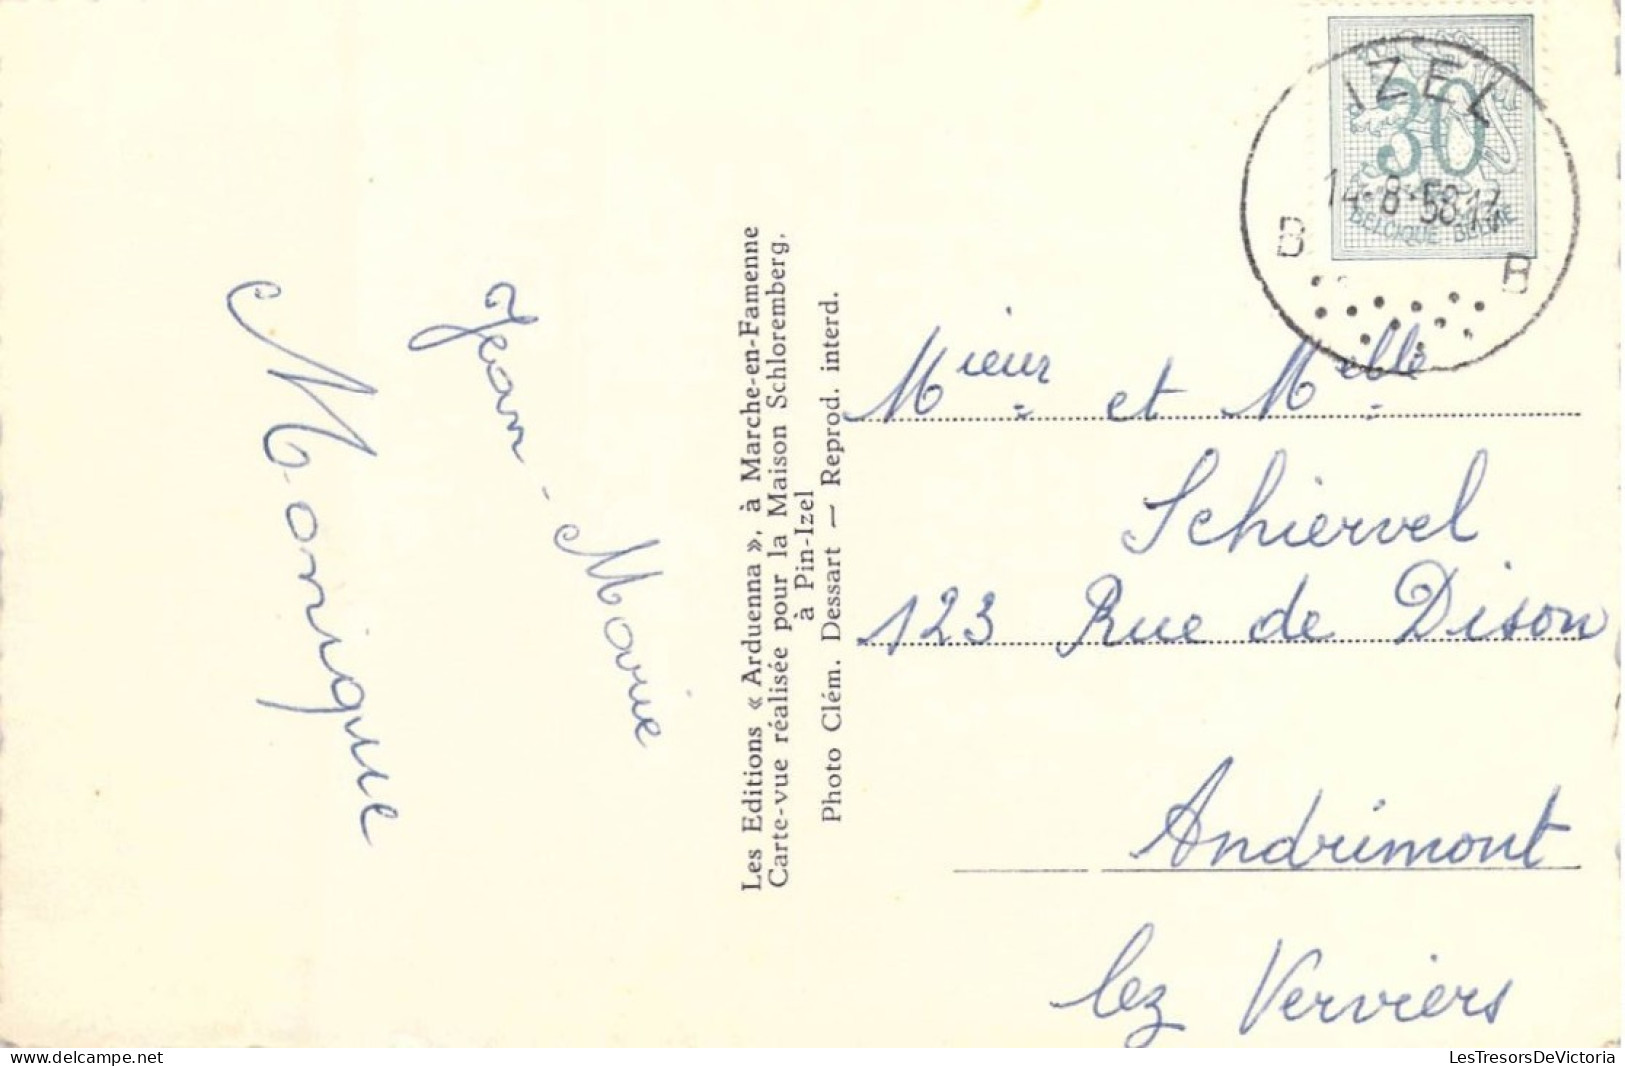 Monique
Jean-Marie
Les Editions « Arduenna », à Marche-en-Famenne
Carte-vue réalisée pour la Maison Schloremberg,
à Pin-Izel
Photo Clém. Dessart — Reprod. interd.
IZEL
30
14-8-58 17
BELGIQUE BELGIE
B B
Mieur et Melle
Schiervel
123 Rue de Dison
Andrimont
lez Verviers
delcampe.net
LesTresorsDeVictoria